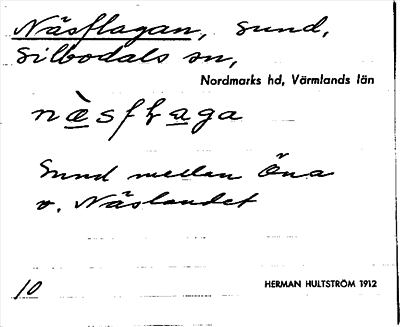 Näsflagan, sund,
Silbodals sn,
Nordmarks hd, Värmlands län
Sund mellan Öna
o. Näslandet
10 HERMAN HULTSTRÖM 1912